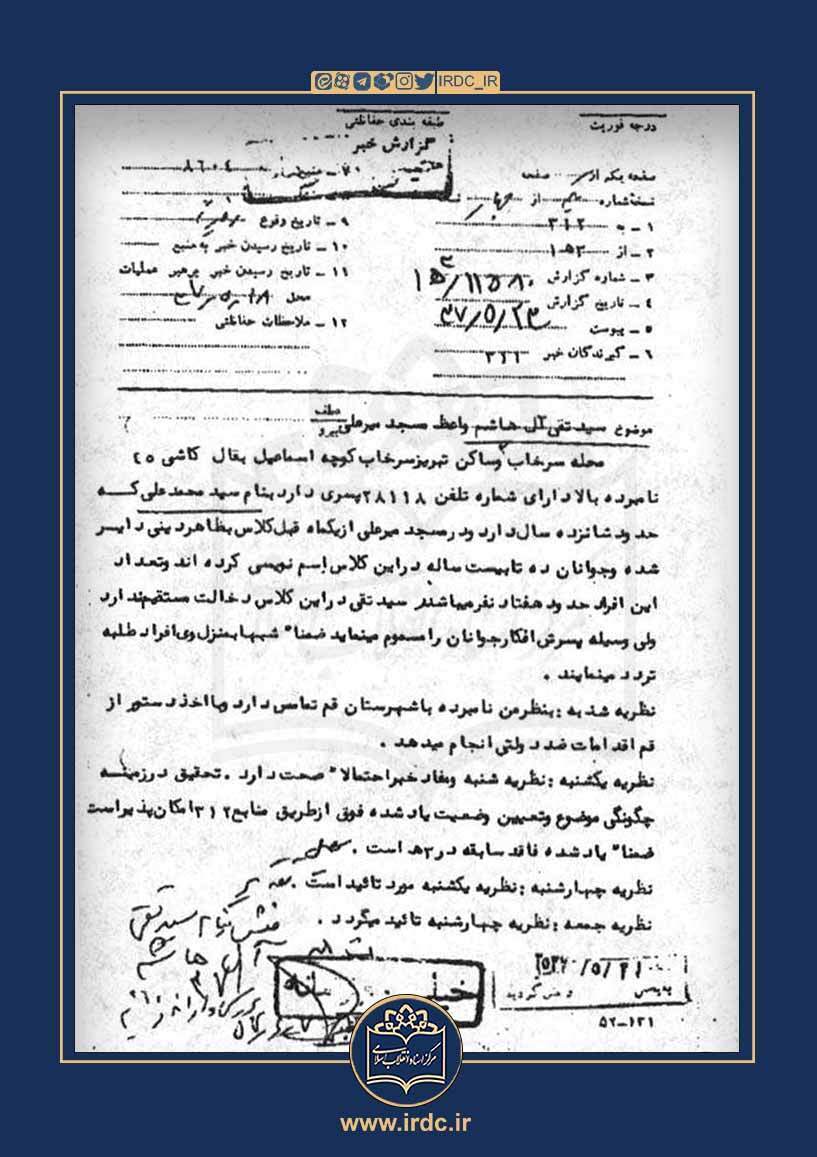 IRDC_IR
درجه فوریت
طبقه بندی حفاظتی
گزارش خبر
صفحه یکم از صفحه
نسخه شماره از چهار
۱ – به ۳۱۲
۲ – از ۱۵۳
۳ – شماره گزارش ۱۵۳/۱۱۵۸۰
۴ – تاریخ گزارش ۳۷/۵/۲۳
۵ – پیوست
۶ – گیرندگان خبر ۳۲۱
۷ – منبع ۸۶۰۴
۹ – تاریخ وقوع
۱۰ – تاریخ رسیدن خبر به منبع
۱۱ – تاریخ رسیدن خبر برهبر عملیات
محل ۳۷/۵/۱۸
۱۲ – ملاحظات حفاظتی
موضوع سید تقی آل هاشم واعظ مسجد میرعلی عطف پیرو
محله سرخاب وساکن تبریز سرخاب کوچه اسماعیل بقال کاشی ۴۵
نامبرده بالا دارای شماره تلفن ۲۸۱۱۸ پسری دارد بنام سید محمد علی که
حدود شانزده سال دارد ودر مسجد میرعلی از یکماه قبل کلاس بظاهر دینی دایر
شده وجوانان ده تا بیست ساله در این کلاس اسم نویسی کرده اند وتعداد
این افراد حدود هفتاد نفر میباشند سید تقی در این کلاس دخالت مستقیم ندارد
ولی وسیله پسرش افکار جوانان را مسموم مینماید ضمنا" شبها بمنزل وی افراد طلبه
تردد مینمایند .
نظریه شنبه : بنظر من نامبرده با شهرستان قم تماس دارد وبا اخذ دستور از
قم اقدامات ضد دولتی انجام میدهد .
نظریه یکشنبه : نظریه شنبه ومفاد خبر احتمالا" صحت دارد . تحقیق در زمینه
چگونگی موضوع وتعیین وضعیت یاد شده فوق از طریق منابع ۳۱۲ امکان پذیر است
ضمنا" یاد شده فاقد سابقه در ۳ هـ است .
نظریه چهارشنبه : نظریه یکشنبه مورد تائید است .
نظریه جمعه : نظریه چهارشنبه تائید میگردد .
سید تقی
آل هاشم
خیلی محرمانه
۵۲-۱۲۱
مرکز اسناد انقلاب اسلامی
www.irdc.ir